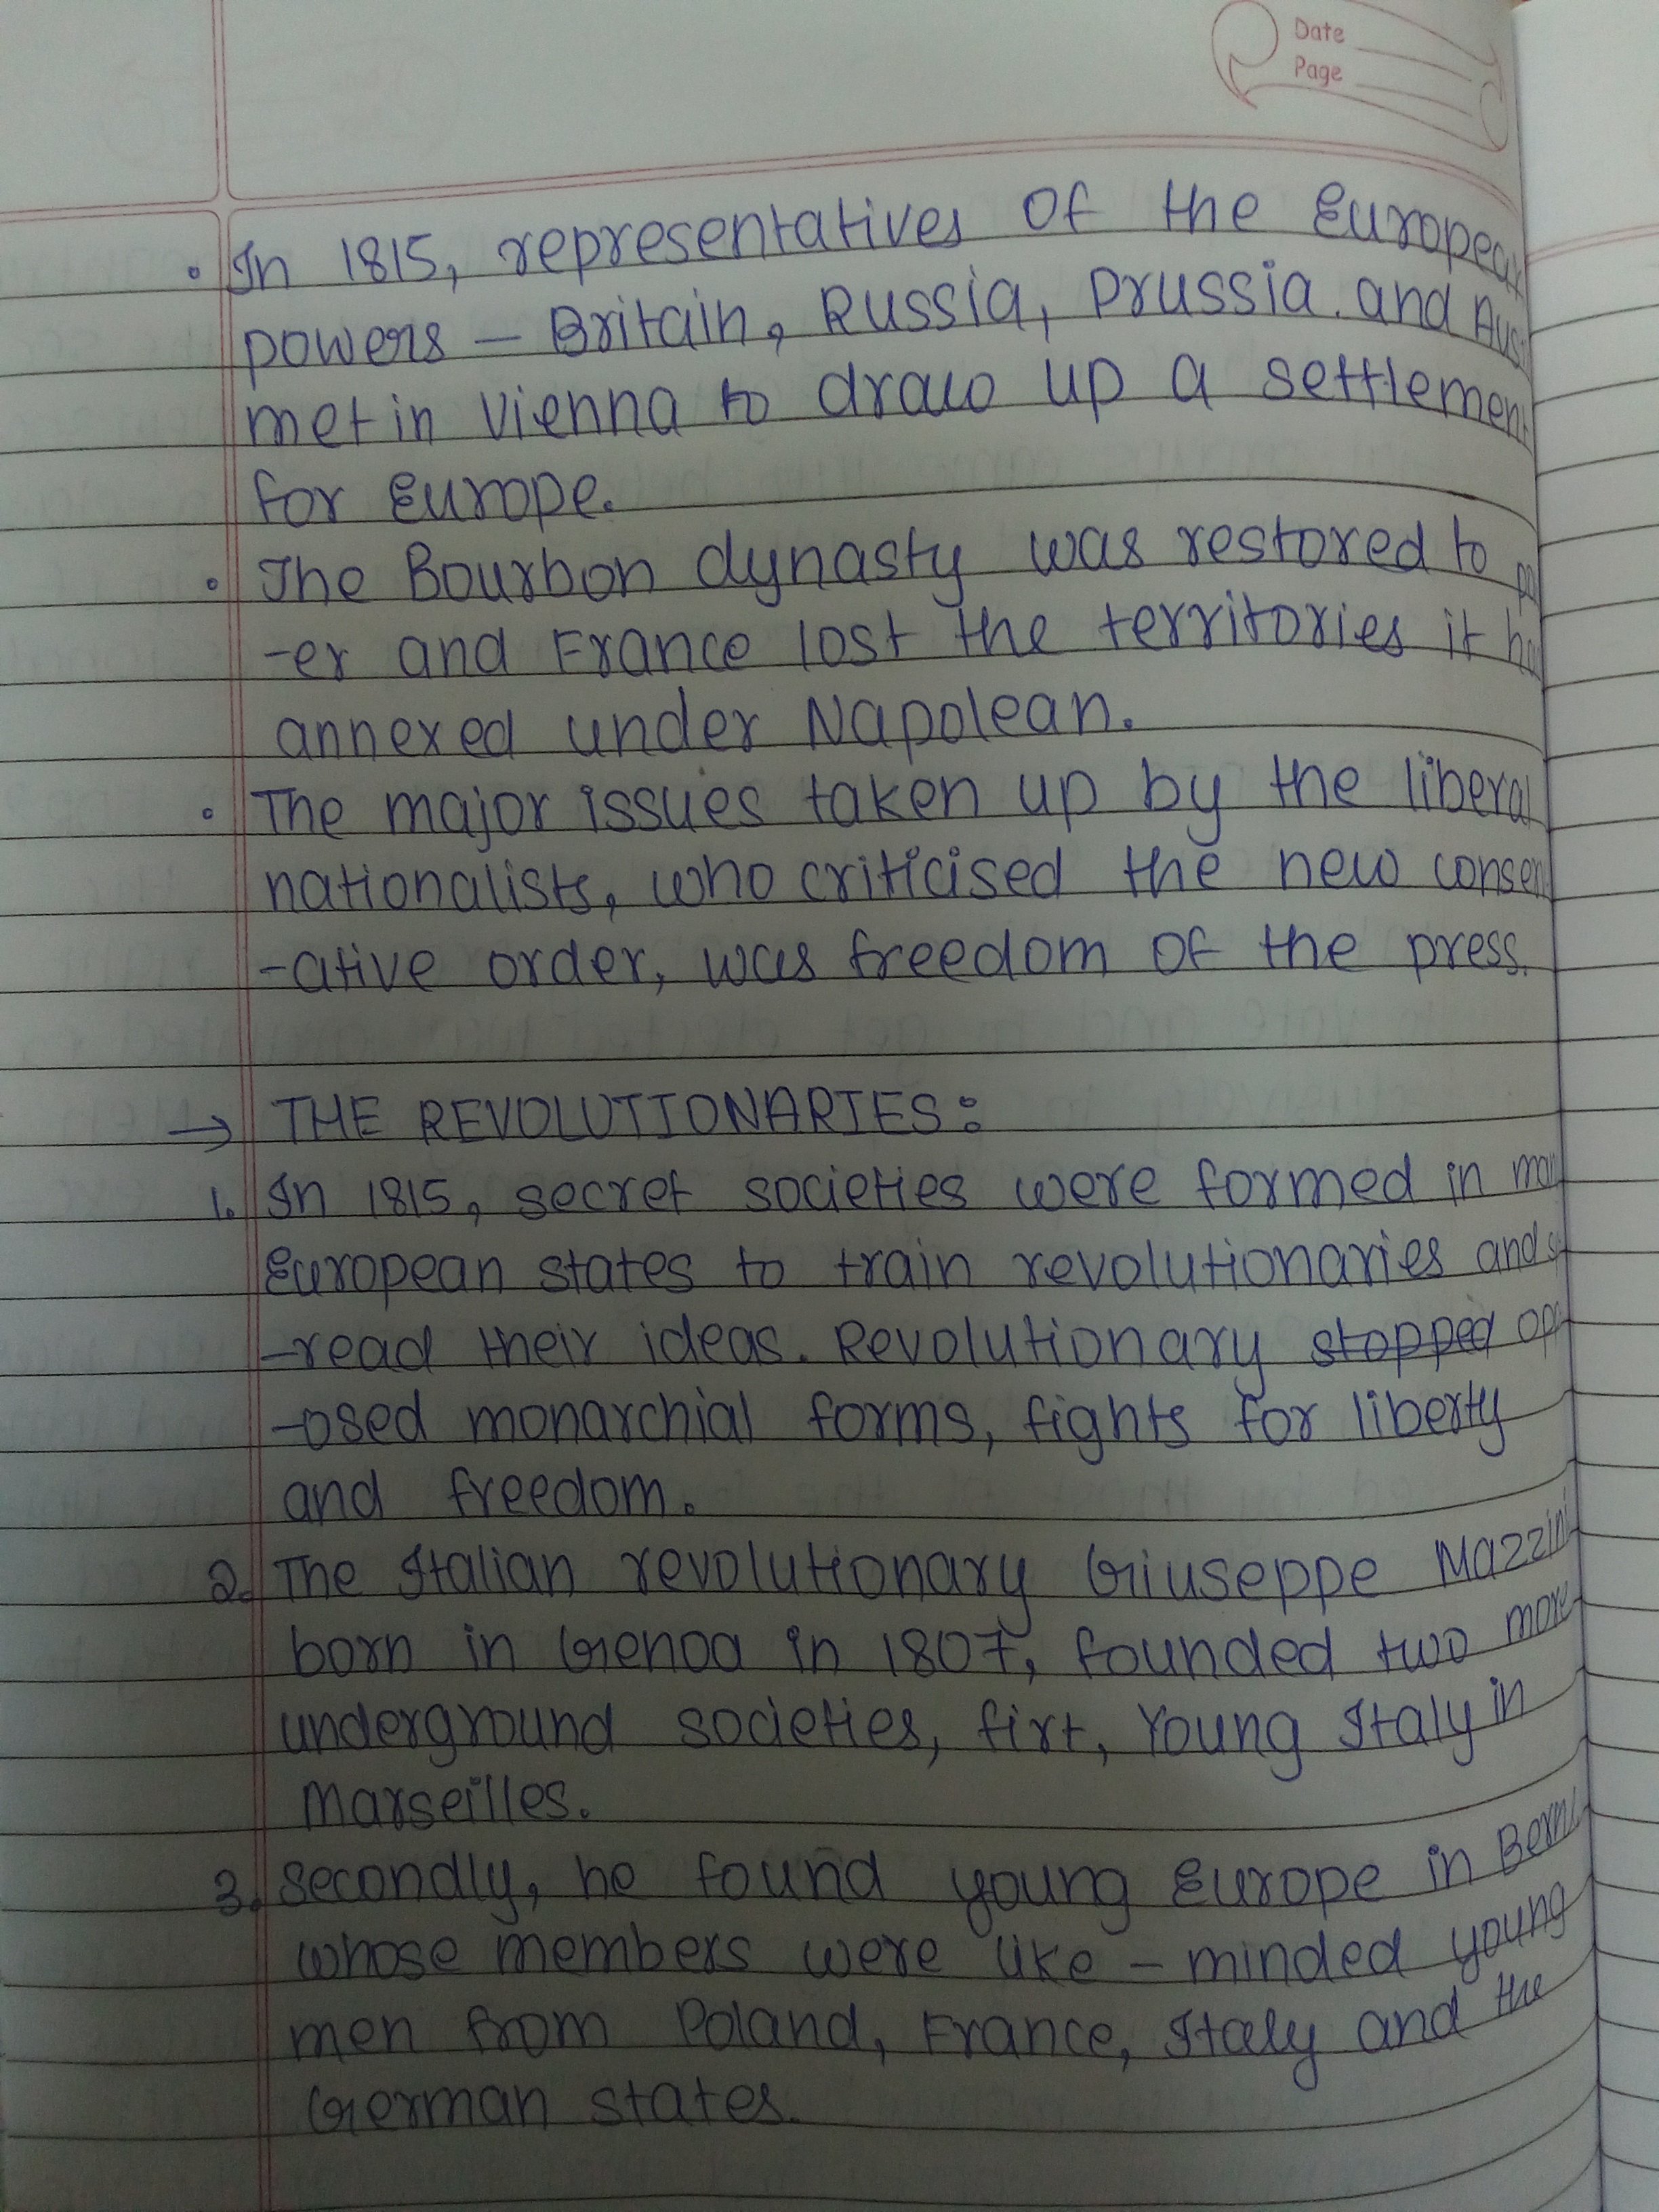 Date
Page
• In 1815, representatives of the European
powers – Britain, Russia, Prussia and Aus
met in Vienna to draw up a settlement
for Europe.
• The Bourbon dynasty was restored to po
-er and France lost the territories it ha
annexed under Napolean.
• The major issues taken up by the liberal
nationalists, who criticised the new conser
-ative order, was freedom of the press.
→ THE REVOLUTIONARIES:
1. In 1815, secret societies were formed in man
European states to train revolutionaries and sp
-read their ideas. Revolutionary stopped opp
-osed monarchial forms, fights for liberty
and freedom.
2. The Italian revolutionary Giuseppe Mazzini
born in Genoa in 1807, founded two more
underground societies, firt, Young Italy in
Marseilles.
3. Secondly, he found young Europe in Bern,
whose members were like – minded young
men from Poland, France, Italy and the
German states.